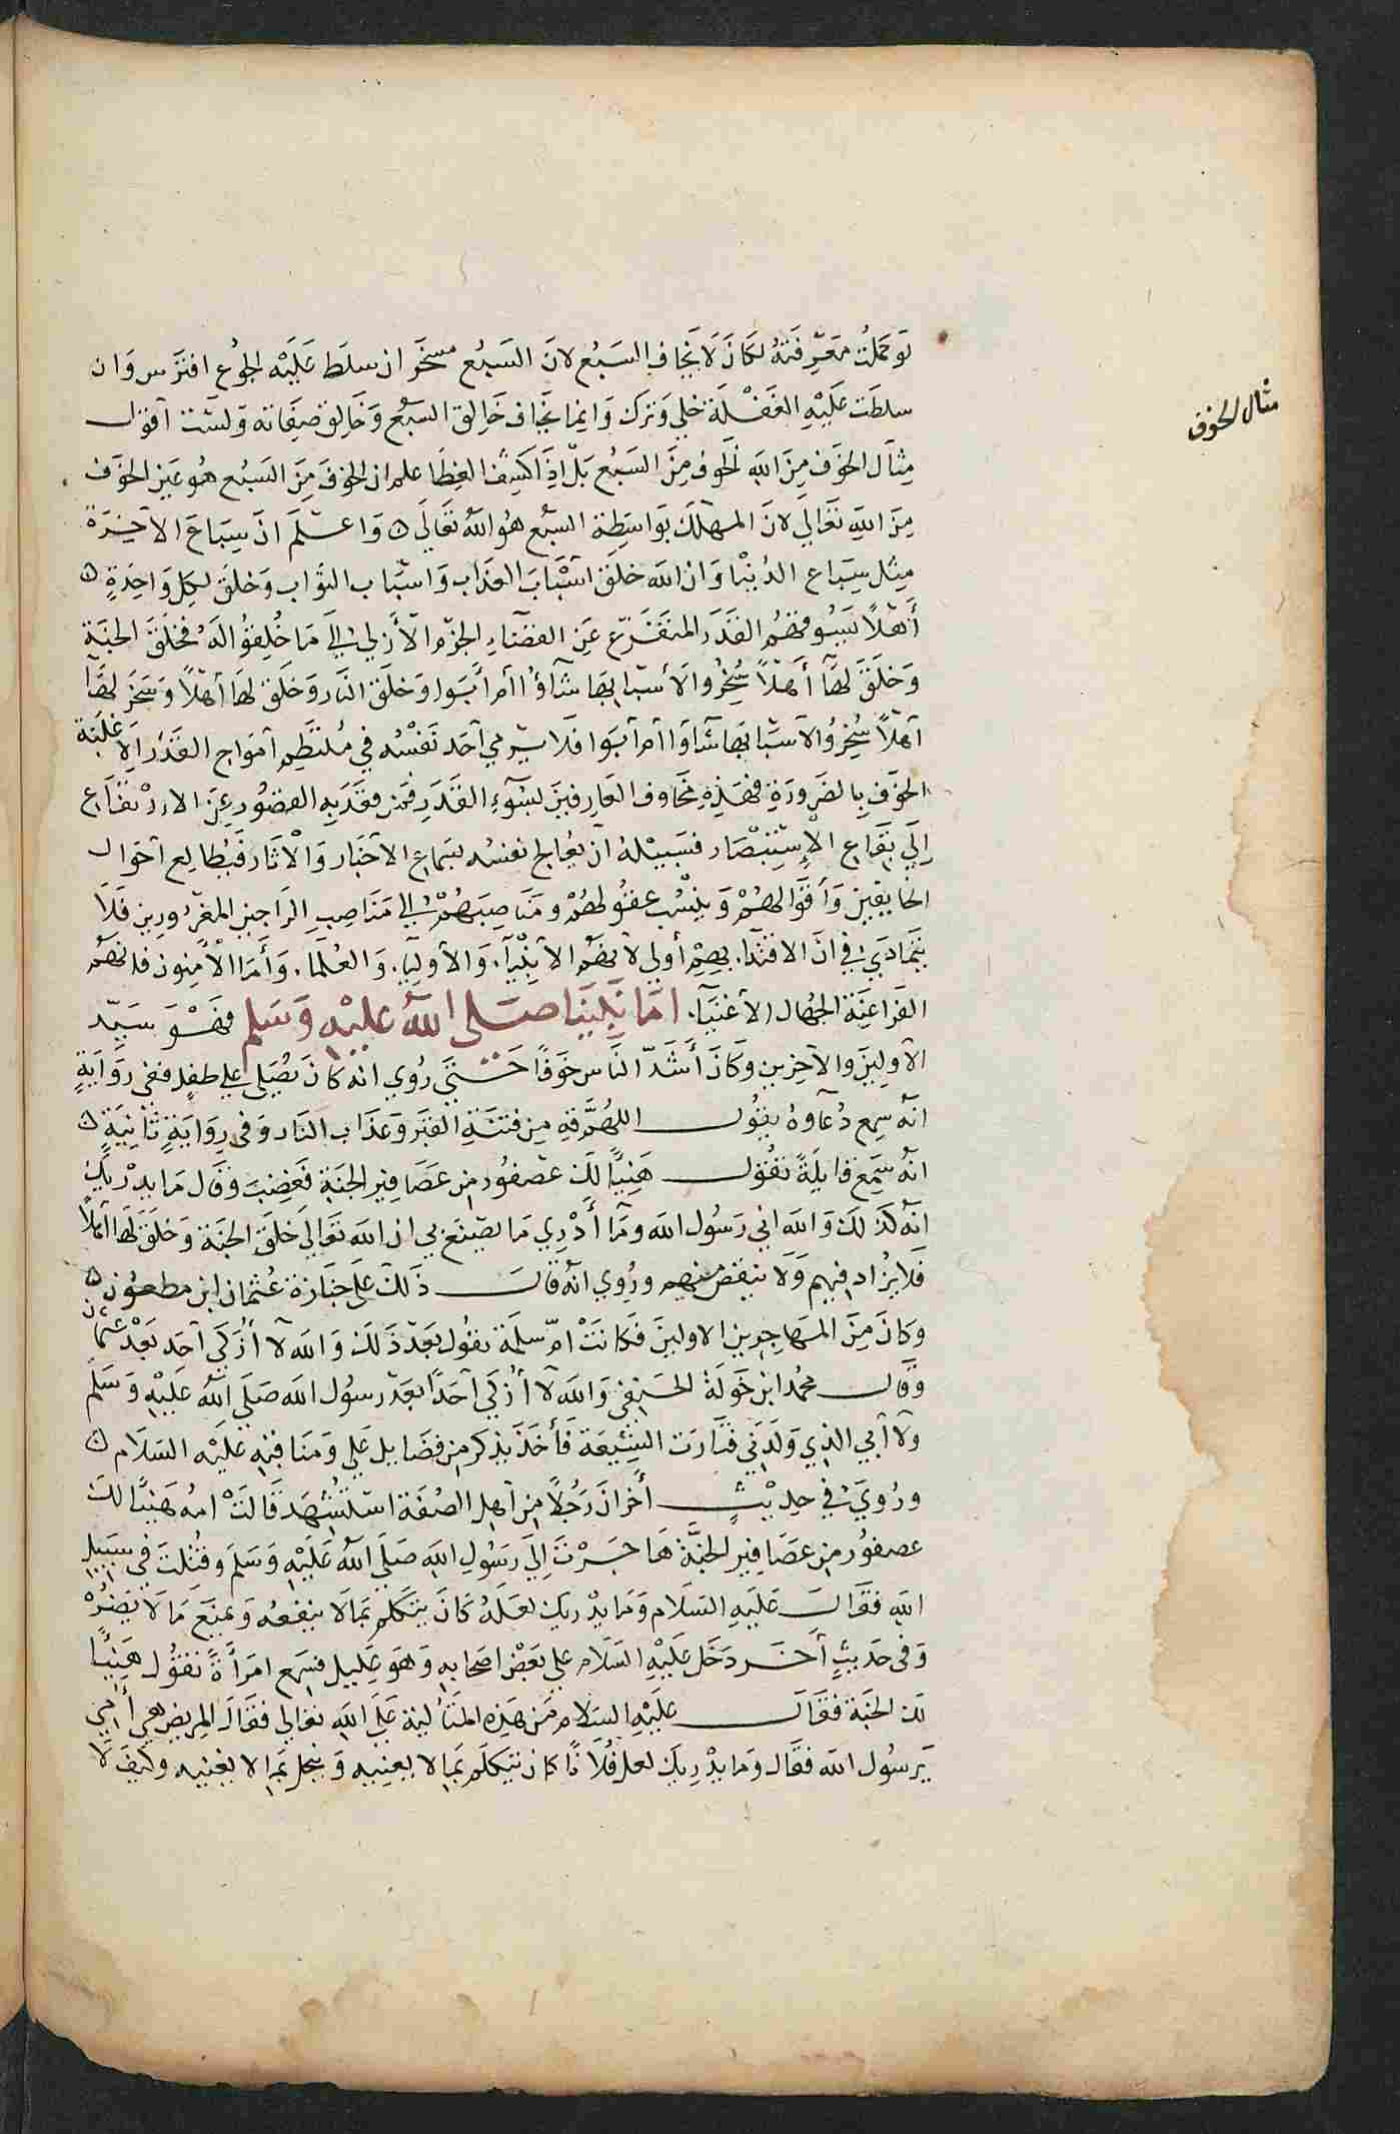 مثال الخوف
لو كملت معرفته لكان لا يخاف السبع لان السبع مسخر ان سلط عليه الجوع افترس وان
سلطت عليه الغفلة خلي وترك وانما يخاف خالق السبع وخالق صفاته ولست اقول
مثال الخوف من الله الخوف من السبع بل اذا كشف الغطا علم ان الخوف من السبع هو عين الخوف
من الله تعالي لان المهلك بواسطة السبع هو الله تعالي واعلم ان سباع الاخرة
مثل سباع الدنيا وان الله خلق اسباب العذاب واسباب الثواب وخلق لكل واحدة
أهلاً يسوقهم القدر المتفرع عن القضاء الجزم الأزلي الي ما خلقوا له فخلق الجنة
وخلق لها أهلاً سُخروا لاسبابها شاؤا أم أبوا وخلق النار وخلق لها أهلاً وسخر لها
اهلاً سُخروا لاسبابها شاوا ام ابوا فلا يرمي احد نفسه في ملتطم امواج القدر الا غلبة
الخوف بالضرورة فهذه مخاوف العارفين بسوء القدر فمن قعد به القصور عن الارتفاع
إلي بقاع الإستبصار فسبيله ان يعالج نفسه بسماع الاخبار والاثار فيطالع احوال
الخايفين واقوالهم وينسب عقولهم ومناصبهم الي مناصب الراجين المغرورين فلا
يتمادي في ان الاقتدا بهم أولي لانهم الانبيا والاوليا والعلما وأما الأمنون فانهم
الفراعنة الجهال الاغنيا اما نبينا صلى الله عليه وسلم فهو سيد
الأولين والآخرين وكان أشد الناس خوفاً حتي روي انه كان يصلي علي طفل ففي رواية
انه سمع دعاوه يقول اللهم قه من فتنة القبر وعذاب النار وفي رواية ثانية
انه سمع قايلةً تقول هنياً لك عصفور من عصافير الجنة فغضب وقال ما يدريك
انه كذلك والله اني رسول الله وما أدري ما يصنع بي ان الله تعالي خلق الجنة وخلق لها اهلاً
فلا يزاد فيهم ولا ينقص منهم وروي انه قال ذلك على جنازة عثمان ابن مطعون
وكان من المهاجرين الاولين فكانت ام سلمة تقول بعد ذلك والله لا أزكي احد بعد عثمان
وقال محمد ابن خولة الحنفي والله لا أزكي احداً بعد رسول الله صلى الله عليه وسلم
ولا ابي الذي ولدني فثارت الشيعة فأخذ يذكر من فضايل علي ومناقبه عليه السلام
وروي في حديثٍ أخر ان رجلاً من اهل الصفة استشهد قالت امه هنياً لك
عصفور من عصافير الجنة هاجرت إلي رسول الله صلى الله عليه وسلم وقتلت في سبيل
الله فقال عليه السلام وما يدريك لعله كان يتكلم بما لا ينفعه ويمنع ما لا يضره
وفي حديثٍ أخر دخل عليه السلام علي بعض اصحابه وهو عليل فسمع امرأةً تقول هنياً
لك الجنة فقال عليه السلام من هذه المتألية على الله تعالي فقال المريض هي أمي
يرسول الله فقال وما يدريك لعل فلاناً كان يتكلم بما لا يعنيه ويبخل بما لا يغنيه وكيف لا